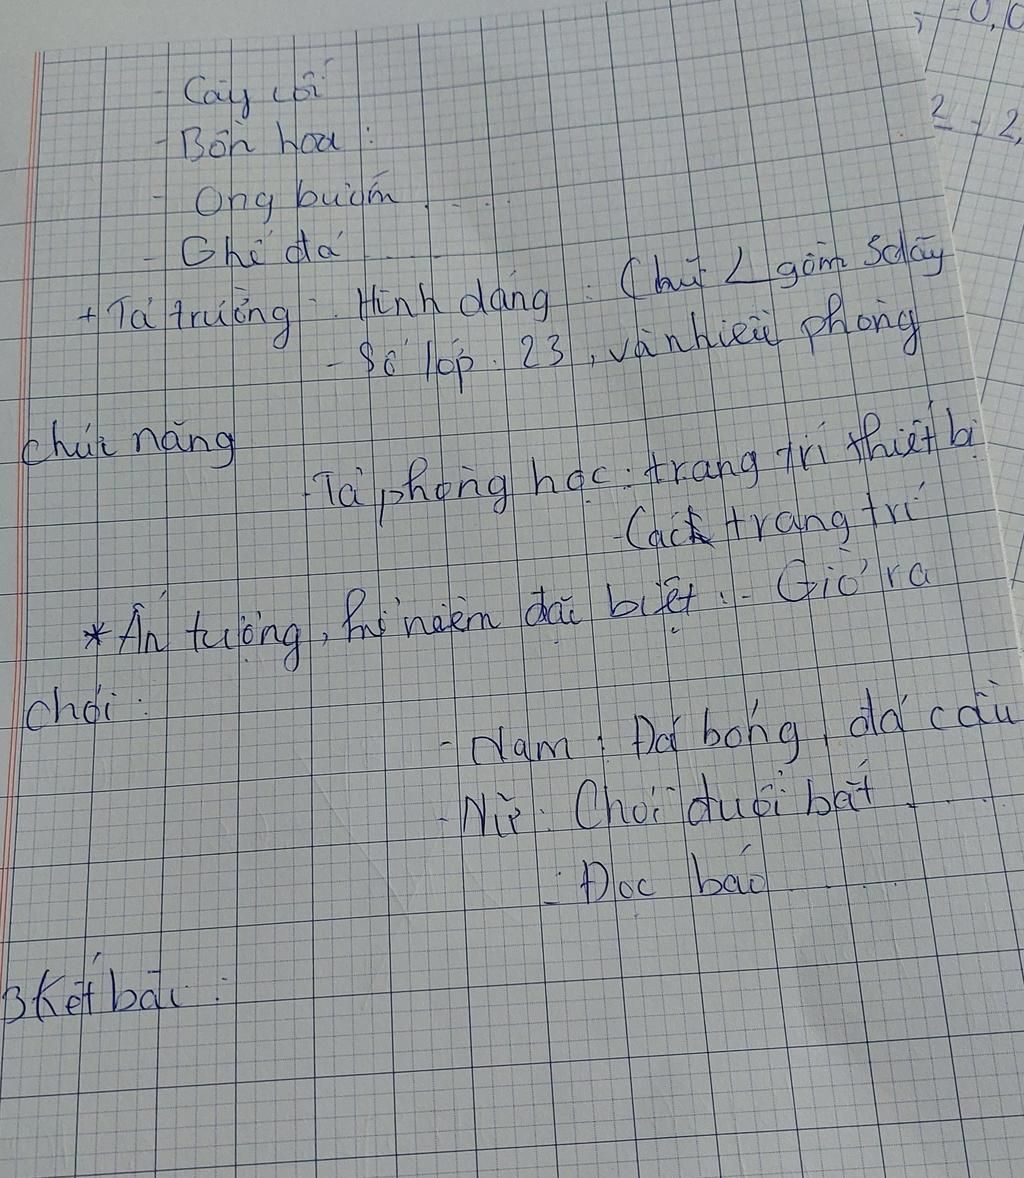 - Cây cối
- Bồn hoa :
- Ong bướm . . . .
- Ghế đá . . . .
+ Tả trường : Hình dáng : Chữ L gồm 3 dãy
- Số lớp : 23 , và nhiều phòng
chức năng
- Tả phòng học : trang trí thiết bị
- Cách trang trí
* Ấn tượng, kỉ niệm đặc biệt : - Giờ ra
chơi :
- Nam : Đá bóng, đá cầu
- Nữ : Chơi đuổi bắt . . . .
- Đọc báo
3 Kết bài :
2